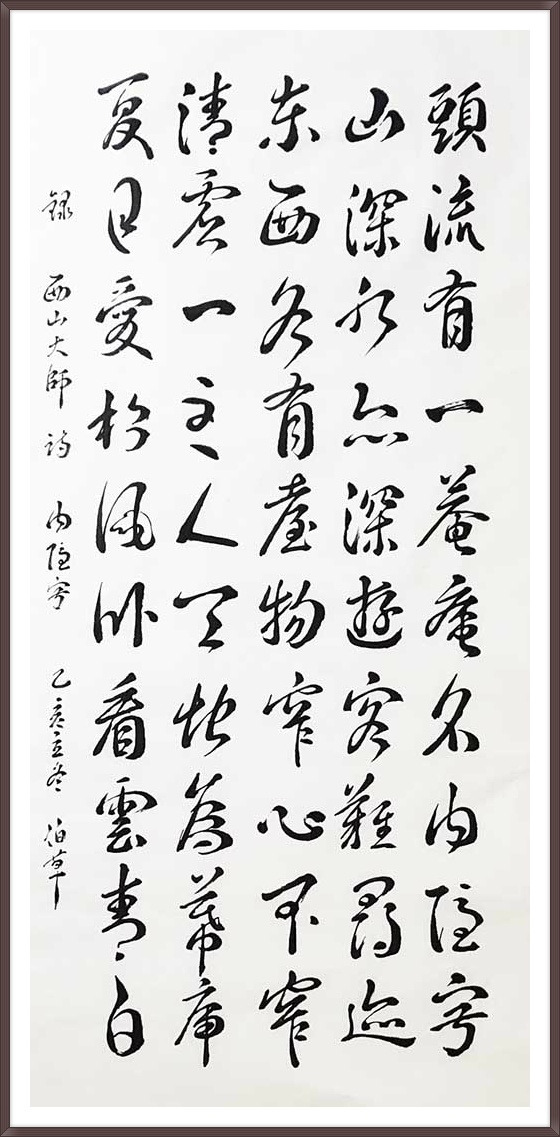 頭流有一菴庵名內隱寂
山深水亦深遊客難尋迹
東西各有臺物窄心不窄
清虛一主人天地為幕席
夏日愛松風臥看雲青白
錄 西山大師 詩 內隱寂 亥立冬 伯草